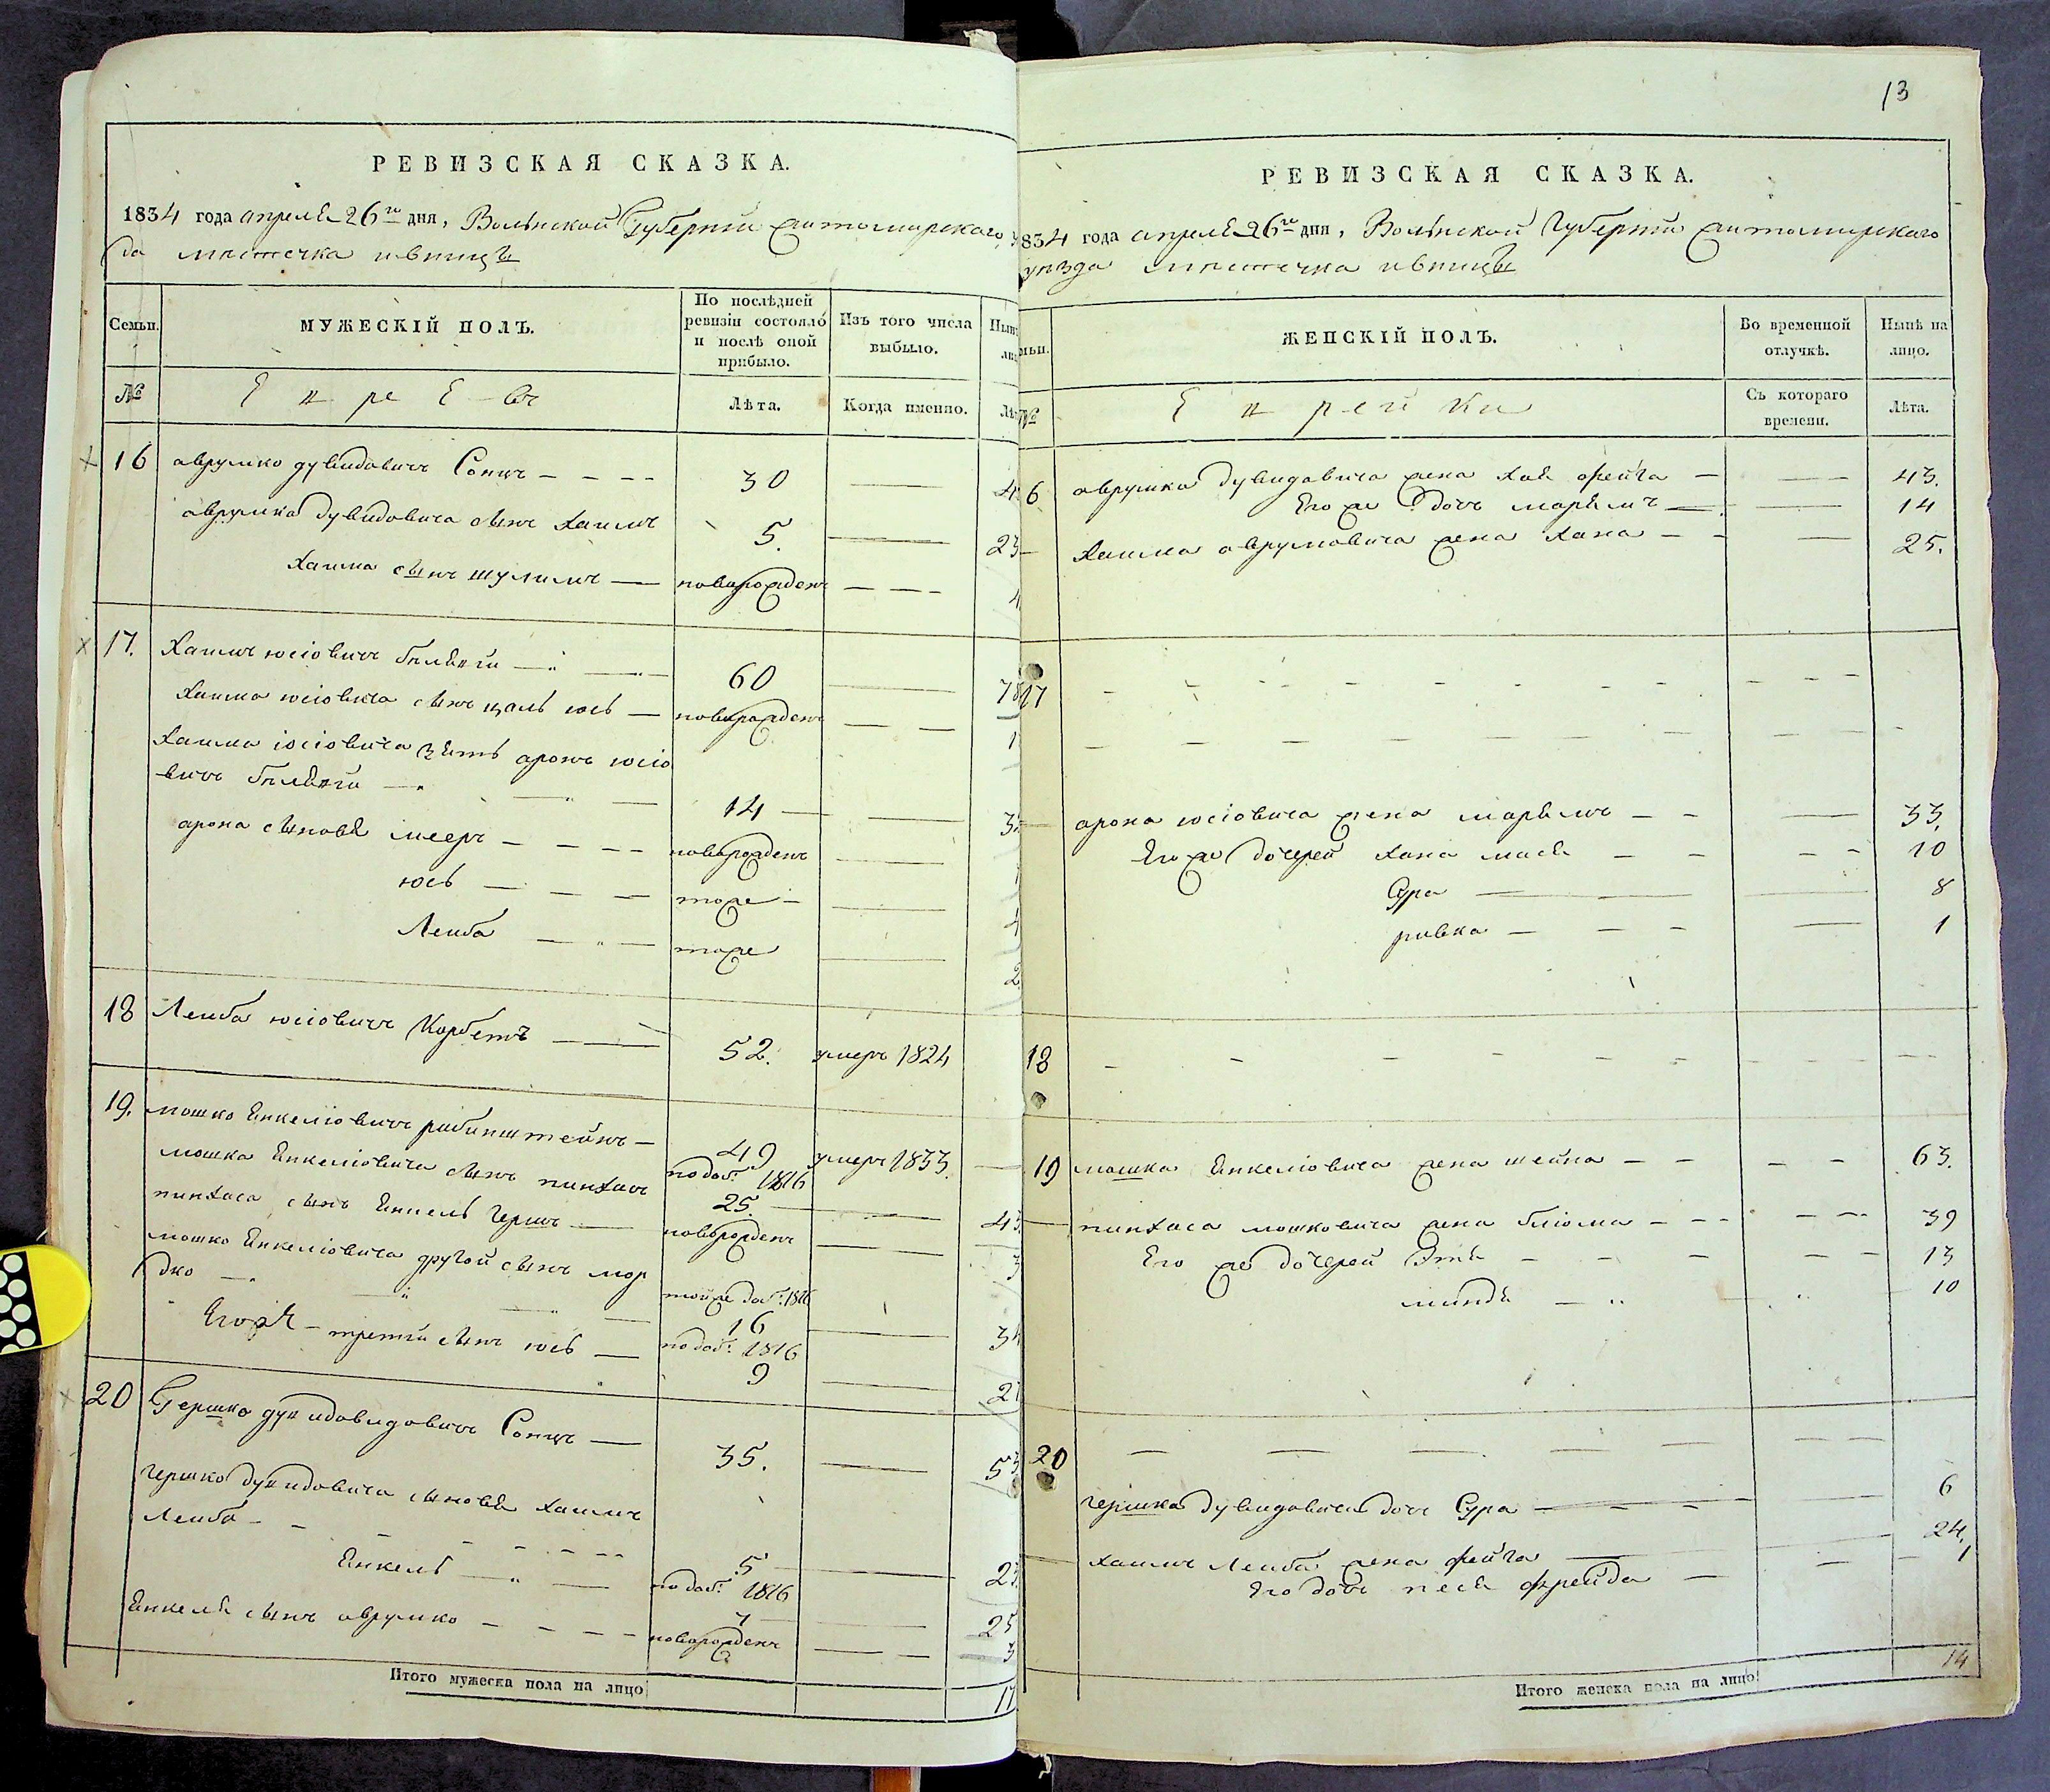 РЕВИЗСКАЯ СКАЗКА.
1834 года апреля 26го дня, Волынской Губернiи житомирского
да мястечка ивницы
Семьи.
МУЖЕСКІЙ ПОЛЪ.
По послѣдней ревизіи состояло и послѣ оной прибыло.
Изъ того числа выбыло.
№
Еврееѣвъ
Лѣта.
Когда именно.
16 аврумко дувидовичъ Сонцъ 30
аврумка дувидовича сынъ хаимъ 5. 23
хаима сынъ шулимъ новорожденъ 4
17. Хаимъ юсіовичъ 60
хаима юсіовича сынъ цаль юсь новорожденъ 1
хаима іосіовича зять аронъ юсіо
вичъ 14
арона сыновя мееръ новорожденъ
юсь тоже 4
Лейба тоже 2
18 Лейба юсіовичъ Корбетъ 52. умеръ 1824
19. мошко Янкеліовичъ рабинштейнъ 49 умеръ 1833.
мошка Янкеліовича сынъ пинхасъ по доб: 1816 25. 43
пинхаса сынъ Янкель гершъ новорожденъ 3
мошко Янкеліовича другой сынъ мор
дко той же доб: 1816 16 34
Его же третій сынъ юсь по доб: 1816 9 27
20 Гершко дувидовидовичъ Сонцъ 35. 53
гершко дувидовича сыновя хаимъ
Лейба 5 23
Янкель по доб: 1816 7 25
Янкеля сынъ аврумко новорожденъ 3
Итого мужеска пола на лицо 17
13
РЕВИЗСКАЯ СКАЗКА.
834 года апреля 26го дня, Волынской Губернiи житомирского
уезда мястечка ивницы
ЖЕНСКІЙ ПОЛЪ.
Во временной отлучкѣ.
Нынѣ на лицо.
№
Еврейки
Съ котораго времени.
Лѣта.
6 аврумка дувидовича жена хая фейга 43.
Его же дочь марямъ 14
хаима аврумовича жена хана 25.
17
арона юсіовича жена марямъ 33.
Его же дочерей хана мася 10
Сура 8
ривка 1
18
19 мошка Янкеліовича жена шейна 63.
пинхаса мошковича жена блюма 39
Его же дочерей Этя 13
миндя 10
20
гершка дувидовича дочь Сура 6
хаимъ Лейба жена фейга 24.
Его дочь песя фрейда 1
Итого женска пола на лицо: 14